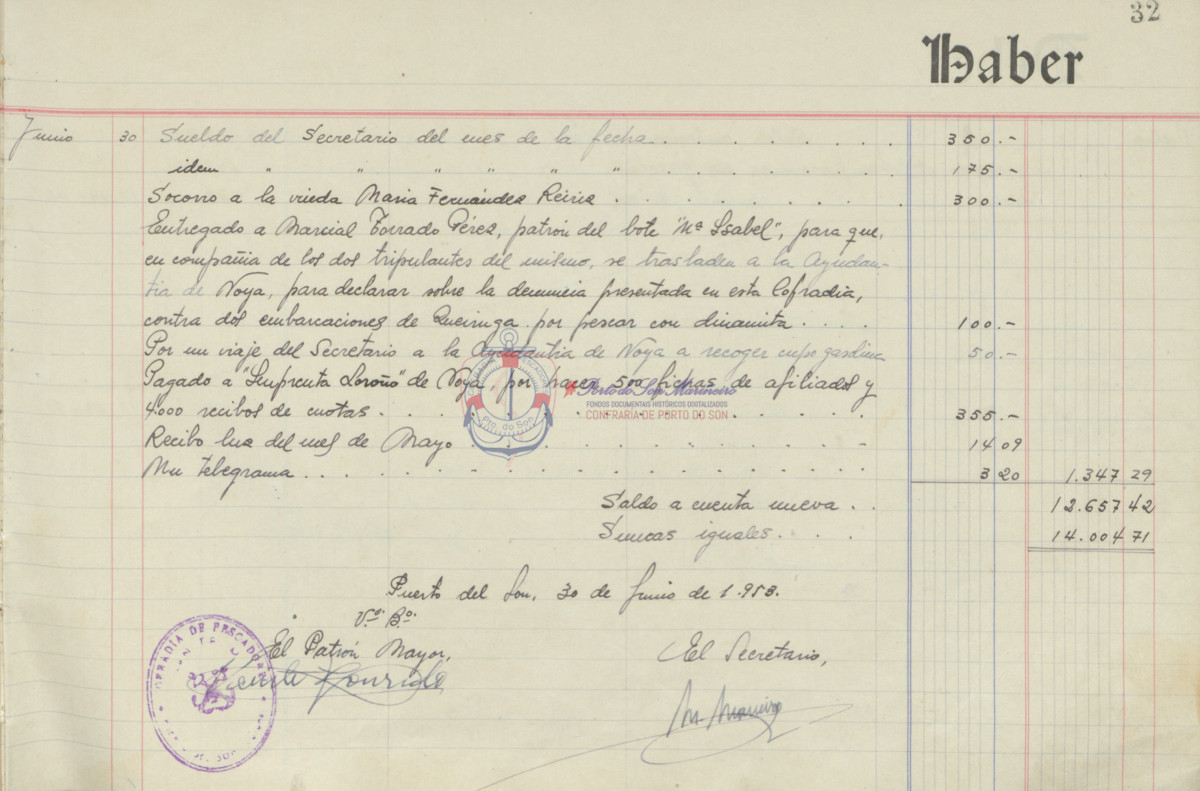 32
Haber
Junio 30 Sueldo del Secretario del mes de la fecha . . . . . . . . 350.-
idem " " " " " " . . . . . . . . 175.-
Socorro a la viuda Maria Fernández Reiris . . . . . . . . . . 300.-
Entregado a Marcial Torrado Pérez, patrón del bote "Mª Isabel", para que,
en compañia de los dos tripulantes del mismo, se trasladen a la Ayudan-
tia de Noya, para declarar sobre la denuncia presentada en esta Cofradia,
contra dos embarcaciones de Queiruga por pescar con dinamita . . . . 100.-
Por un viaje del Secretario a la Ayudantia de Noya a recoger cupo gasolina 50.-
Pagado a "Imprenta Loroño" de Noya, por hacer 500 fichas de afiliados y
4.000 recibos de cuotas . . . . . . . . . . . . . 355.-
Recibo luz del mes de Mayo . . . . . . . . . 14 09
Un telegrama . . . . . . . . . . . . . 3 20 1.347 29
Saldo a cuenta nueva . . 12.657 42
Sumas iguales . . . . 14.004 71
Puerto del Son, 30 de Junio de 1.953.
Vº Bº
El Patrón Mayor,
El Secretario,
M. Maneiro
COFRADIA DE PESCADORES
Porto do Son Mariñeiro
FONDOS DOCUMENTAIS HISTÓRICOS DIXITALIZADOS
CONFRARÍA DE PORTO DO SON
Pto. do Son